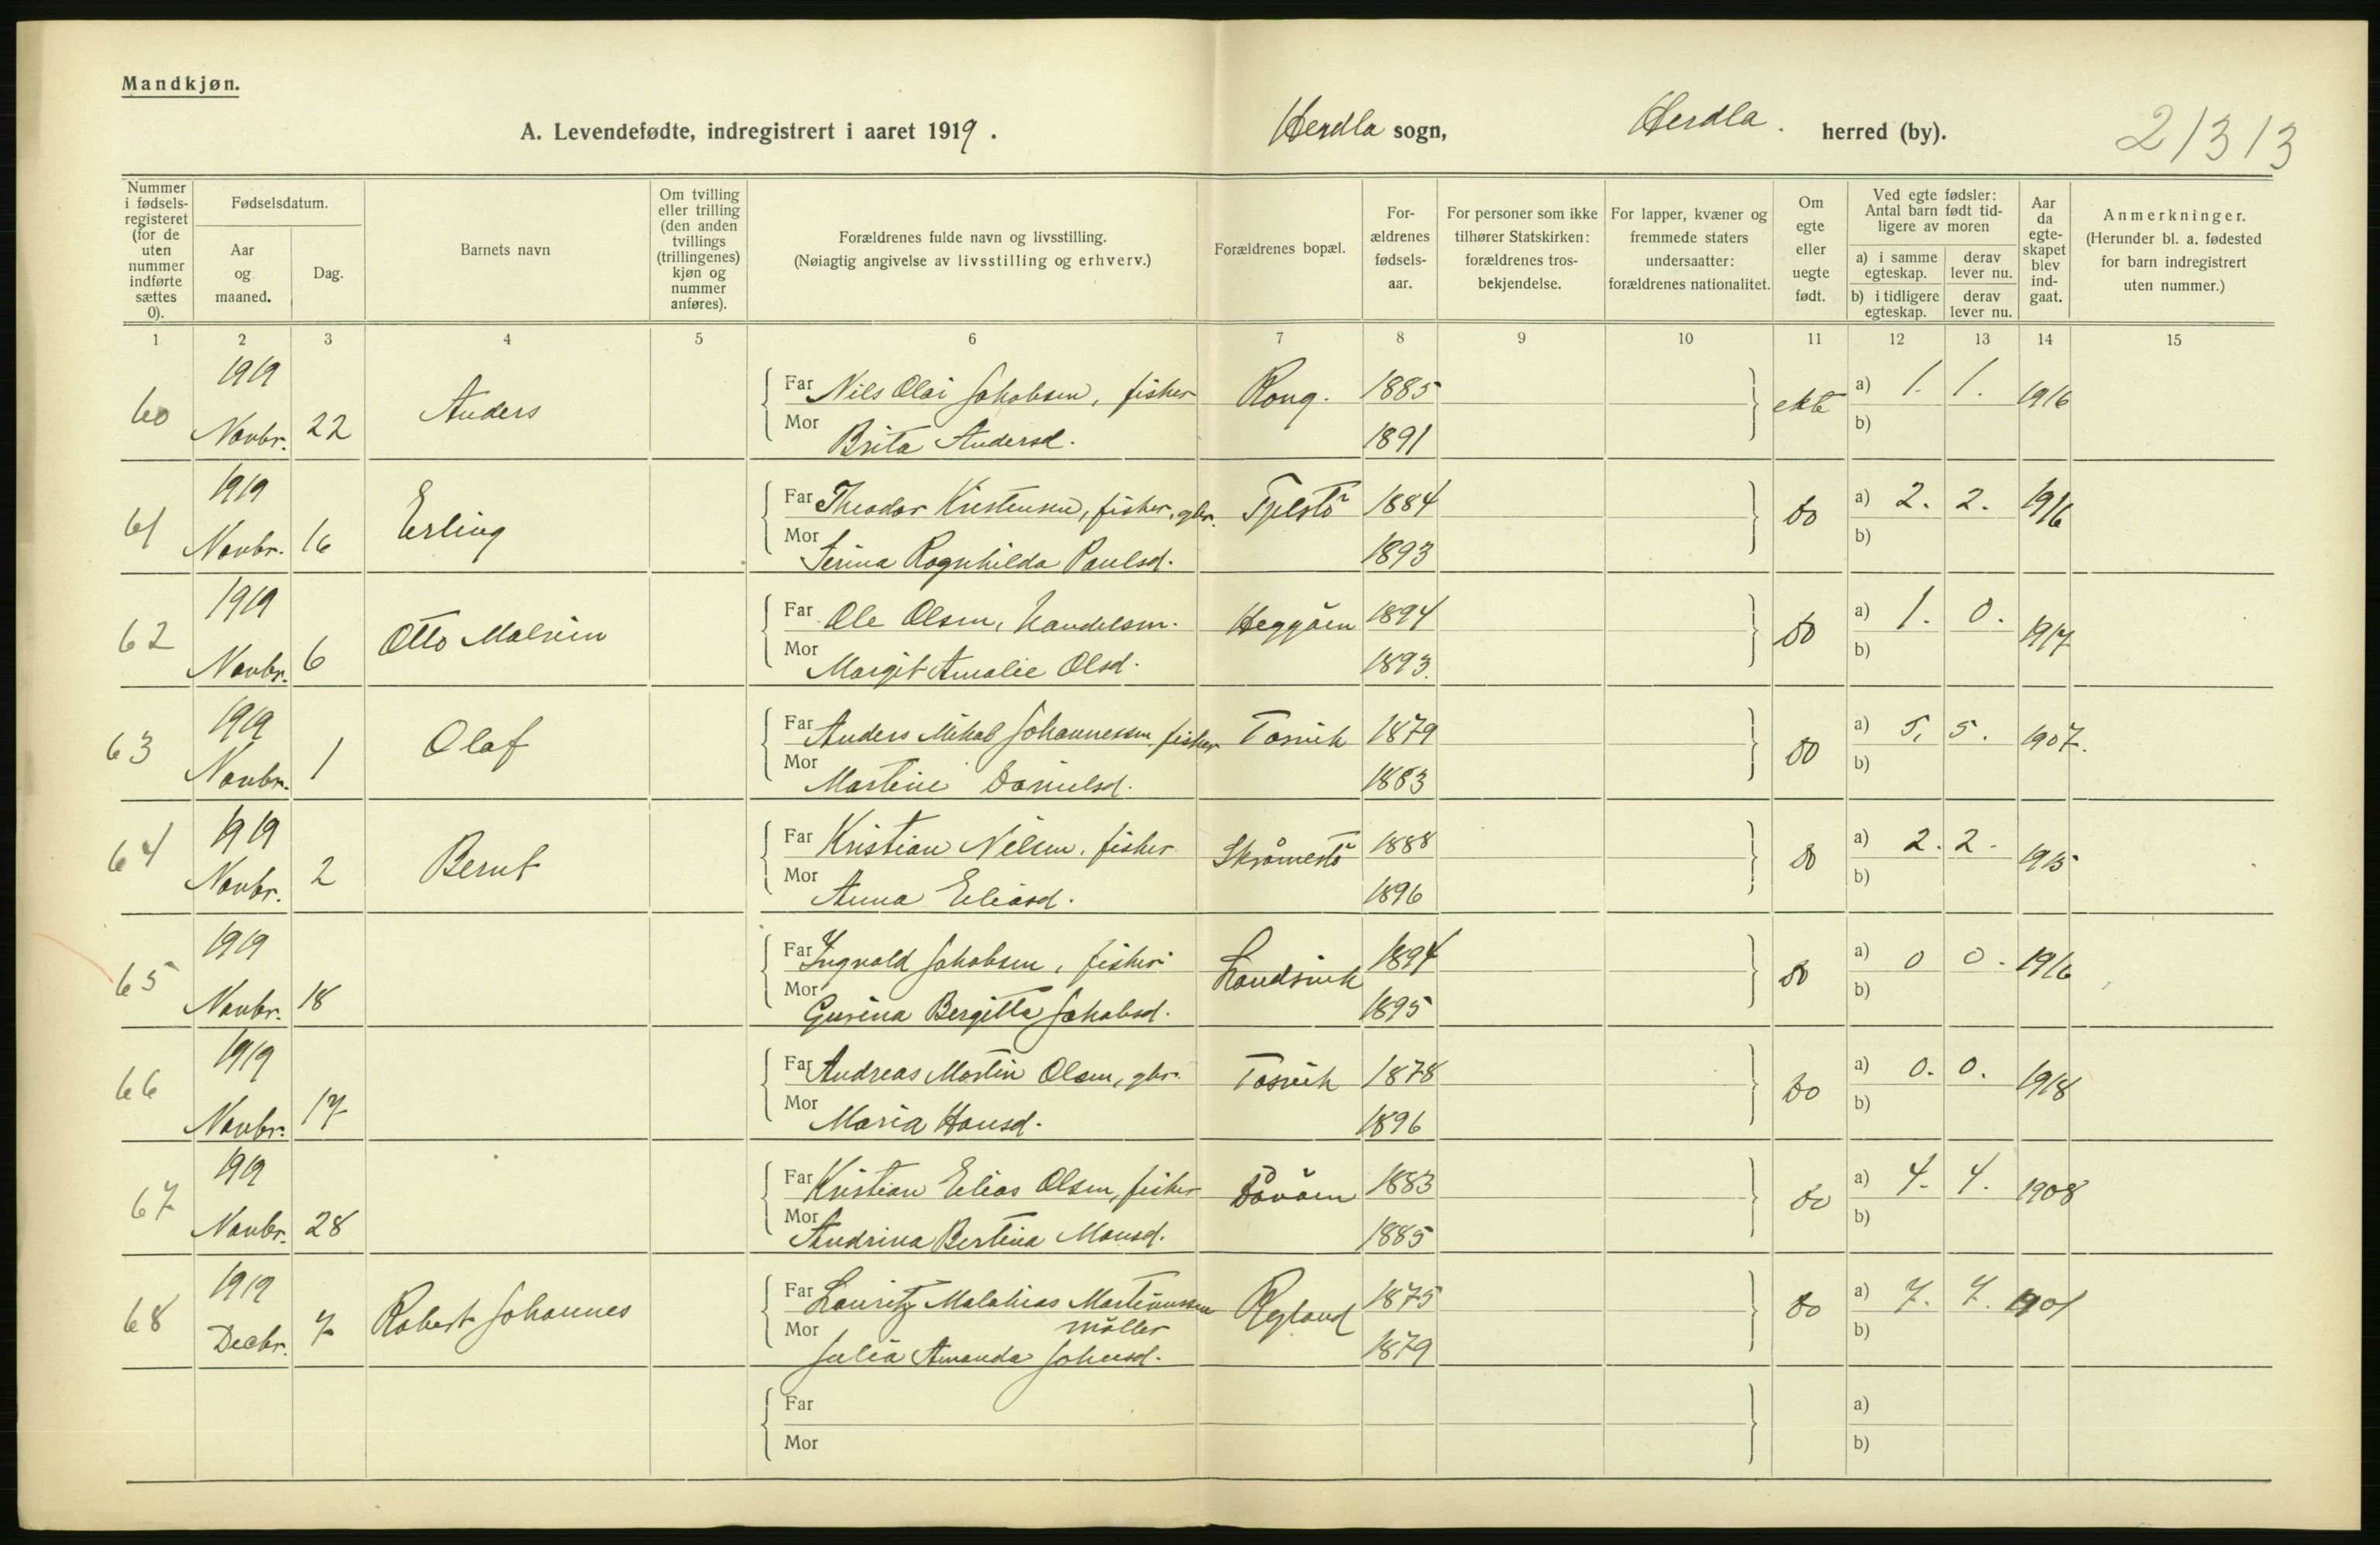 Mandkjøn.
A. Levendefødte, indregistrert i aaret 1919. Herdla sogn, Herdla. herred (by). 21313
Nummer i fødselsregisteret (for de uten nummer indførte sættes 0).
Fødselsdatum.
Aar og maaned.
Dag.
Barnets navn
Om tvilling eller trilling (den anden tvillings (trillingenes) kjøn og nummer anføres).
Forældrenes fulde navn og livsstilling.
(Nøiagtig angivelse av livsstilling og erhverv.)
Forældrenes bopæl.
For-ældrenes fødsels-aar.
For personer som ikke tilhører Statskirken: forældrenes tros-bekjendelse.
For lapper, kvæner og fremmede staters undersaatter: forældrenes nationalitet.
Om egte eller uegte født.
Ved egte fødsler: Antal barn født tid-ligere av moren
a) i samme egteskap.
derav lever nu.
b) i tidligere egteskap.
derav lever nu.
Aar da egte-skapet blev ind-gaat.
Anmerkninger.
(Herunder bl. a. fødested for barn indregistrert uten nummer.)
1 2 3 4 5 6 7 8 9 10 11 12 13 14 15
60 1919 Novbr. 22 Anders Far Nils Olai Jakobsen, fisker Rong. 1885 ekte a) 1. 1. 1916
Mor Brita Andersd. 1891 b)
61 1919 Novbr. 16 Erling Far Theodor Kristensen, fisker, gbr. Tjelstö 1884 do a) 2. 2. 1916
Mor Serina Ragnhilda Paulsd. 1893 b)
62 1919 Novbr. 6 Otto Malvin Far Ole Olsen, handelsm. Heggöen 1894 do a) 1. 0. 1917
Mor Margit Amalie Olsd. 1893. b)
63 1919 Novbr. 1 Olaf Far Anders Mikal Johannessen fisker Tosvik 1879 do a) 5, 5. 1907.
Mor Martine Danielsd. 1883 b)
64 1919 Novbr. 2 Bernt Far Kristian Nilsen. fisker Skråmestö 1888 do a) 2. 2. 1915
Mor Anna Eliasd. 1896 b)
65 1919 Novbr. 18 Far Ingvald Jakobsen, fisker Landsvik 1894 do a) 0 0. 1916
Mor Gurina Bergitta Jakobsd. 1895 b)
66 1919 Novbr. 17 Far Andreas Martin Olsen, gbr. Tosvik 1878 do a) 0. 0. 1918
Mor Maria Hansd. 1896 b)
67 1919 Novbr. 28 Far Kristian Elias Olsen, fisker Dåvöen 1883 do a) 4. 4. 1908
Mor Andrina Bertina Monsd. 1885 b)
68 1919 Decbr. 7 Robert Johannes Far Lauritz Malakias Martinussen möller Ryland 1875 do a) 7. 7. 1901
Mor Julia Amanda Johnsd. 1879 b)
Far a)
Mor b)